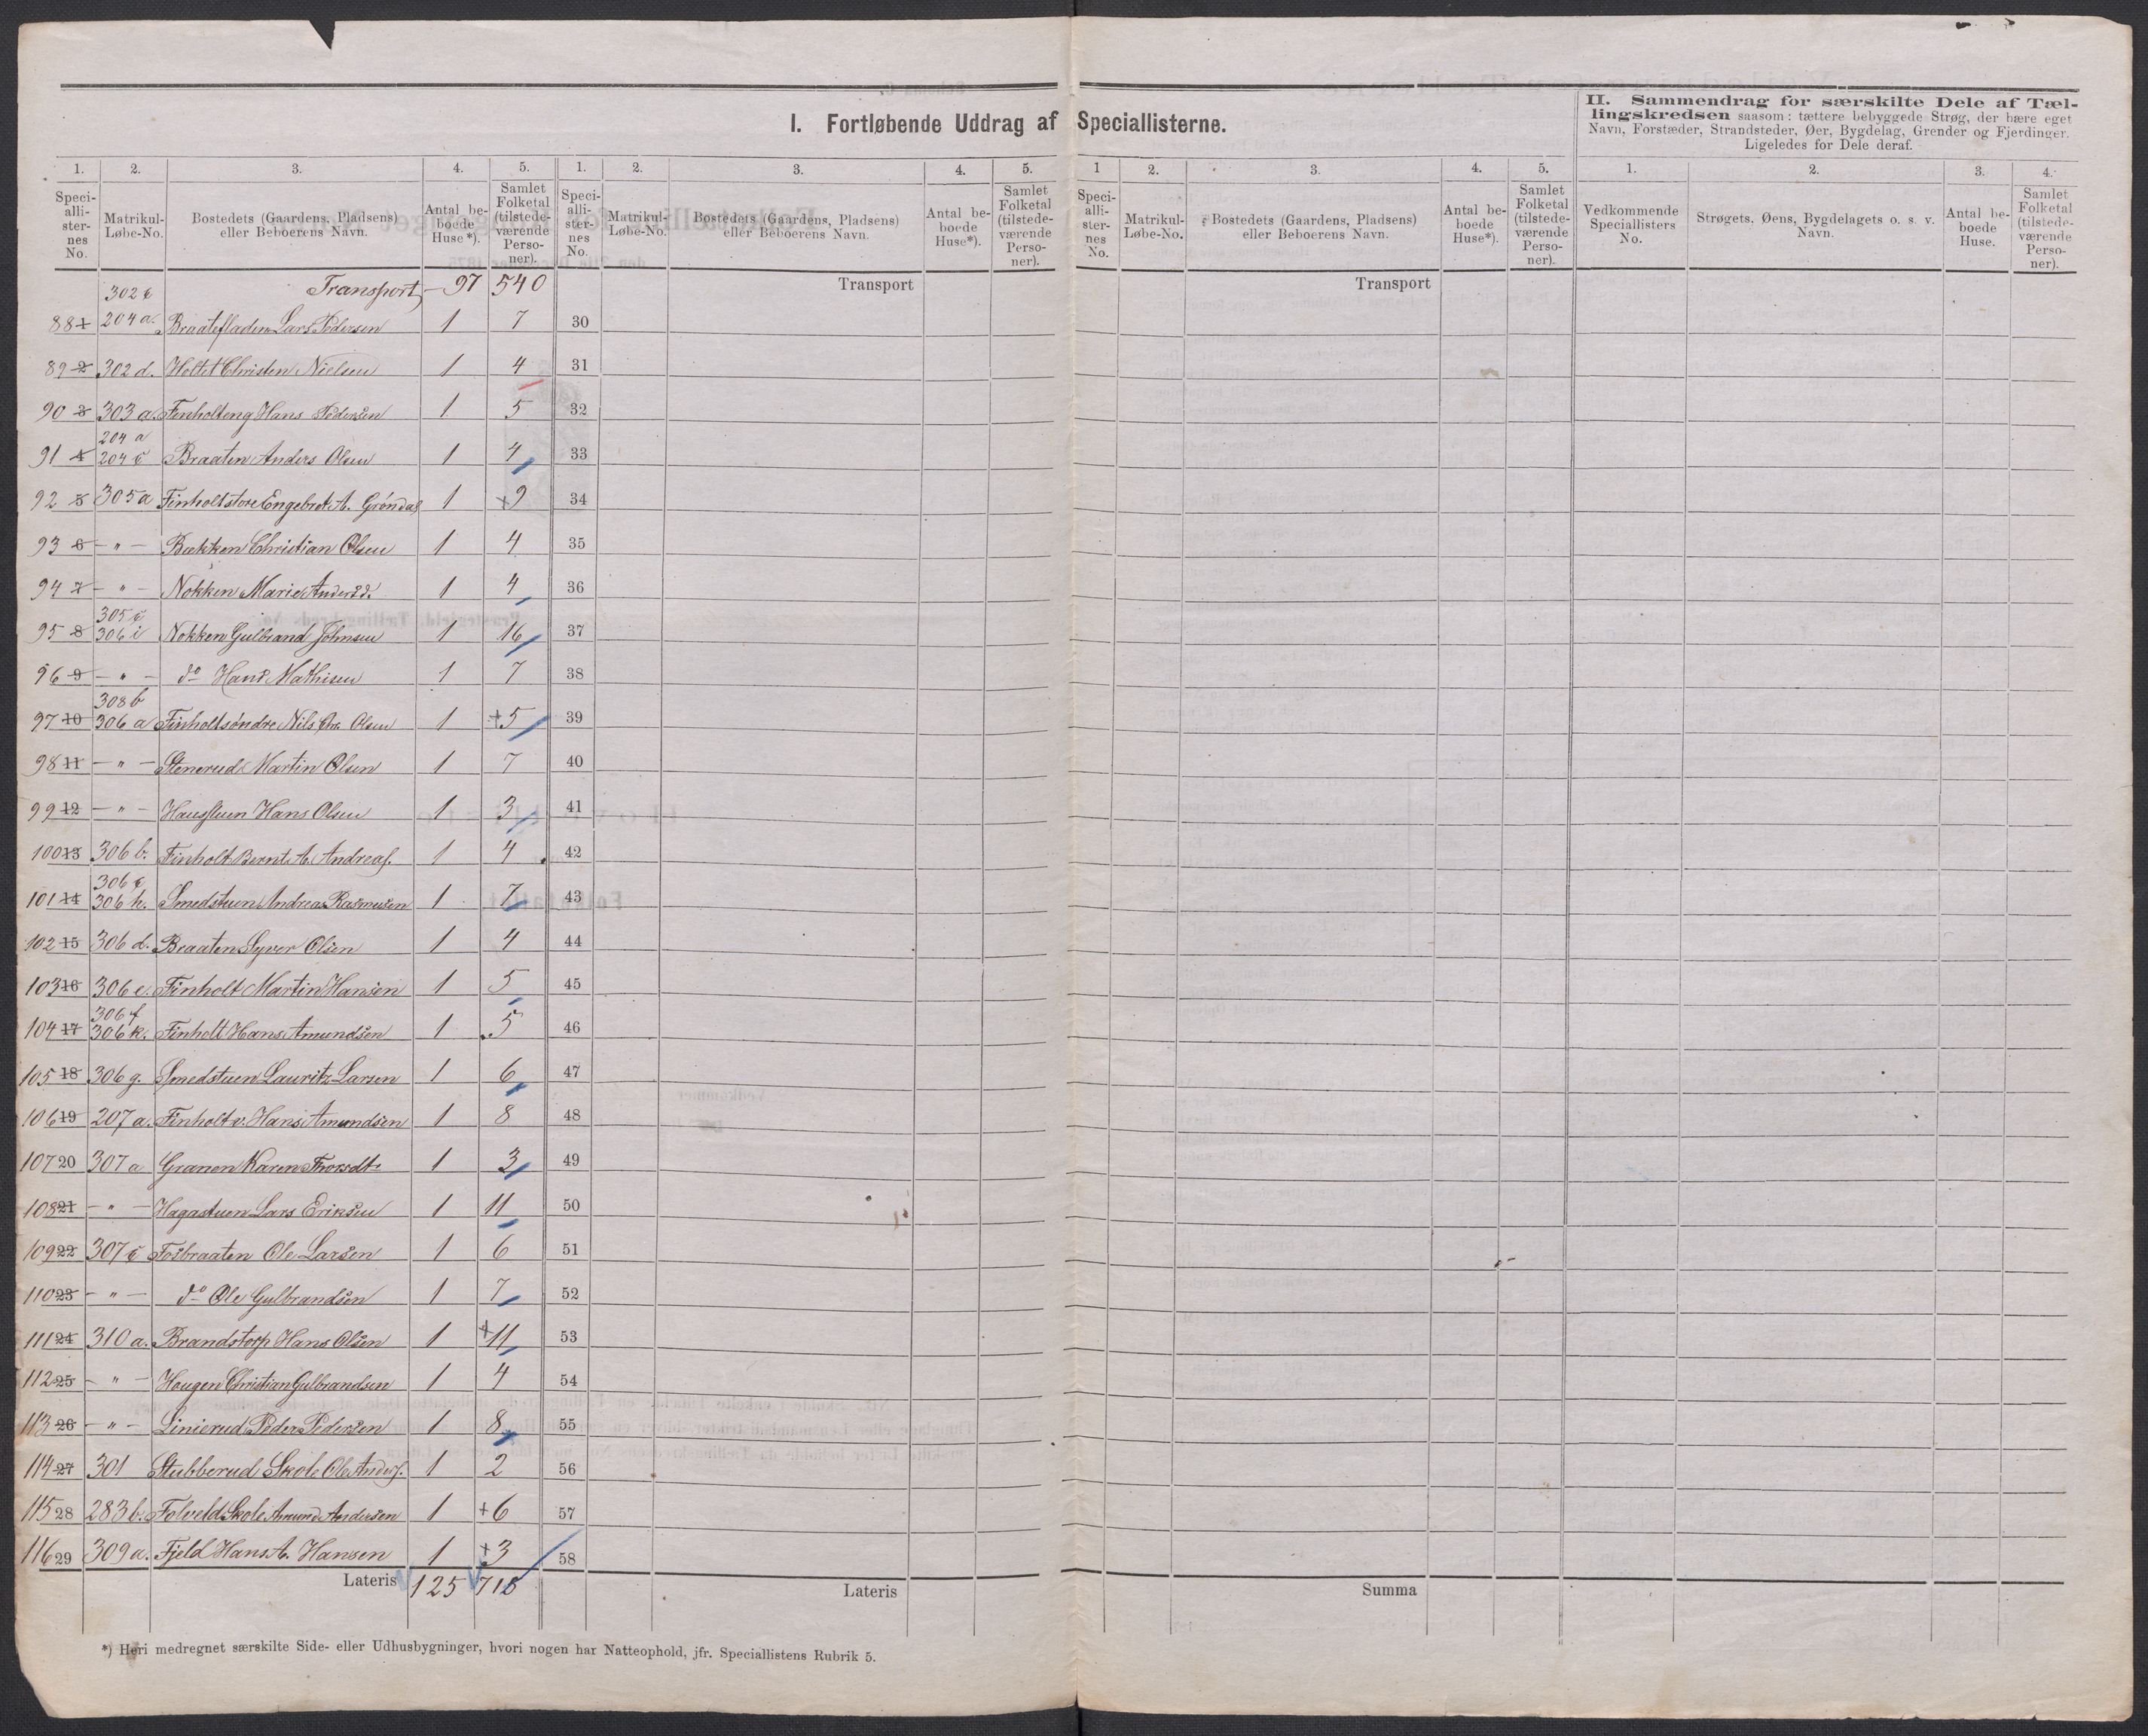 I. Fortløbende Uddrag af Speciallisterne.
II. Sammendrag for særskilte Dele af Tæl-
lingskredsen saasom: tættere bebyggede Strøg, der bære eget
Navn, Forstæder, Strandsteder, Øer, Bygdelag, Grender og Fjerdinger.
Ligeledes for Dele deraf.
1. 2. 3. 4. 5. 1. 2. 3. 4. 5. 1 2. 3. 4. 5. 1. 2. 3. 4.
Speci-alli-ster-nes No. Matrikul-Løbe-No. Bostedets (Gaardens, Pladsens) eller Beboerens Navn. Antal be-boede Huse*). Samlet Folketal (tilstede-værende Perso-ner).
Speci-alli-ster-nes No. Matrikul-Løbe-No. Bostedets (Gaardens, Pladsens) eller Beboerens Navn. Antal be-boede Huse*). Samlet Folketal (tilstede-værende Perso-ner).
Speci-alli-ster-nes No. Matrikul-Løbe-No. Bostedets (Gaardens, Pladsens) eller Beboerens Navn. Antal be-boede Huse*). Samlet Folketal (tilstede-værende Perso-ner).
Vedkommende Speciallisters No. Strøgets, Øens, Bygdelagets o. s. v. Navn. Antal be-boede Huse. Samlet Folketal (tilstede-værende Perso-ner).
Transport 97 540 Transport Transport
302 c
88 1 204 a. Braatefladen Lars Pedersen 1 7 30
89 2 302 d. Holtet Christen Nielsen 1 4 31
90 3 303 a. Finholteng Hans Pedersen 1 5 32
204 a
91 4 204 c Braaten Anders Olsen 1 4 33
92 5 305 a Finholt store Engebret A. Grøndal 1 +9 34
93 6 - " - Bækken Christian Olsen 1 4 35
94 7 - " - Nokken Marie Andersd. 1 4 36
305 c
95 8 306 i Nokken Gulbrand Johnsen 1 16 37
96 9 - " - do Hans Mathisen 1 7 38
308 b
97 10 306 a Finholt søndre Nils Chr. Olsen 1 +5 39
98 11 - " - Stenerud Martin Olsen 1 7 40
99 12 - " - Haugstuen Hans Olsen 1 3 41
100 13 306 b. Finholt Bernt A. Andreas. 1 4 42
306 c
101 14 306 h. Smedstuen Andreas Rasmusen 1 7 43
102 15 306 d. Braaten Syver Olsen 1 4 44
103 16 306 e. Finholt Martin Hansen 1 5 45
306 f
104 17 306 k. Finholt Hans Amundsen 1 5 46
105 18 306 g. Smedstuen Lauritz Larsen 1 6 47
106 19 207 a. Finholt v. Hans Amundsen 1 8 48
107 20 307 a Granen Karen Thorsdt. 1 3 49
108 21 - " - Hagastuen Lars Eriksen 1 11 50
109 22 307 c Fosbraaten Ole Larsen 1 6 51
110 23 - " - do Ole Gulbrandsen 1 7 52
111 24 310 a. Brandstorp Hans Olsen 1 +11 53
112 25 - " - Haugen Christian Gulbrandsen 1 4 54
113 26 - " - Linierud Peder Pedersen 1 8 55
114 27 301 Stubberud Skole Ole Anders. 1 2 56
115 28 283 b. Folveld Skole Amund Andersen 1 +6 57
116 29 309 a. Fjeld Hans A. Hansen 1 +3 58
Lateris 125 716 Lateris Summa
*) Heri medregnet særskilte Side- eller Udhusbygninger, hvori nogen har Natteophold, jfr. Speciallistens Rubrik 5.